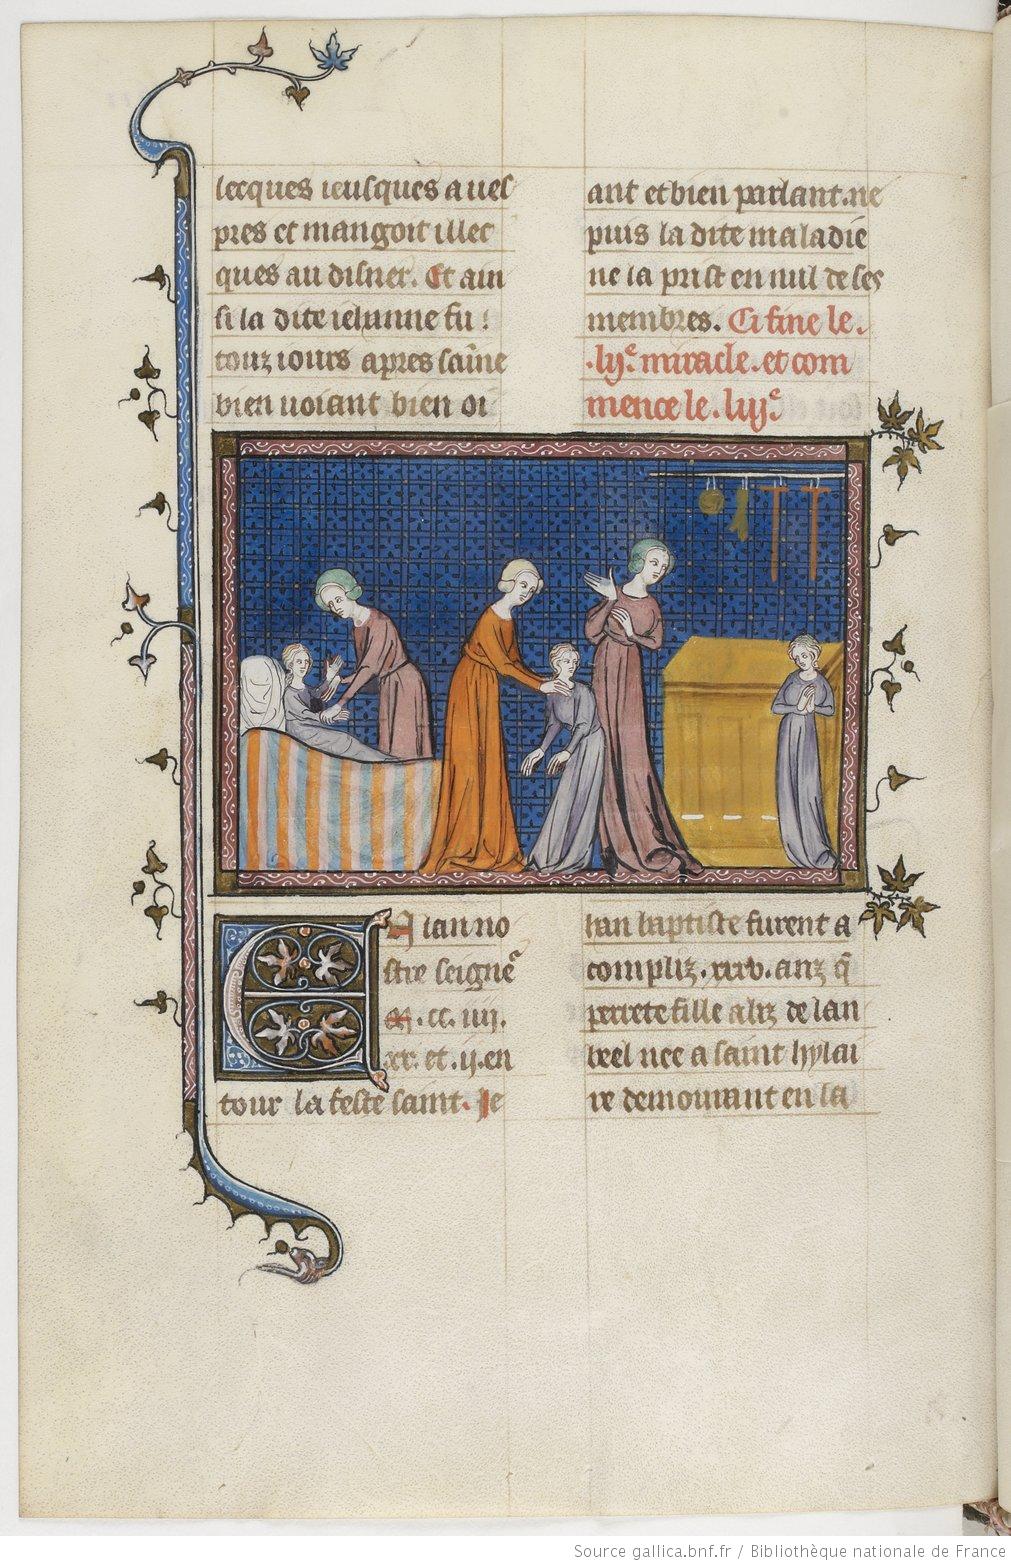 lecques ieusques a ues
pres et mangoit illec
ques au disner. Et ain
si la dite iehanne fu
touz iours apres saine
bien uoiant bien oi
ant et bien parlant. ne
puis la dite maladie
ne la prist en nul de ses
membres. Ci fine le.
.lije miracle. et com
mence le. liije
EA lan no
stre seigne
M. cc. iiij.
xx. et. ij. en
tour la feste saint. Je
han baptiste furent a
compliz. xxxv. anz q̃
perrete fille aliz de lan
beel nee a saint hylai
re demourant en la
Source gallica.bnf.fr / Bibliothèque nationale de France